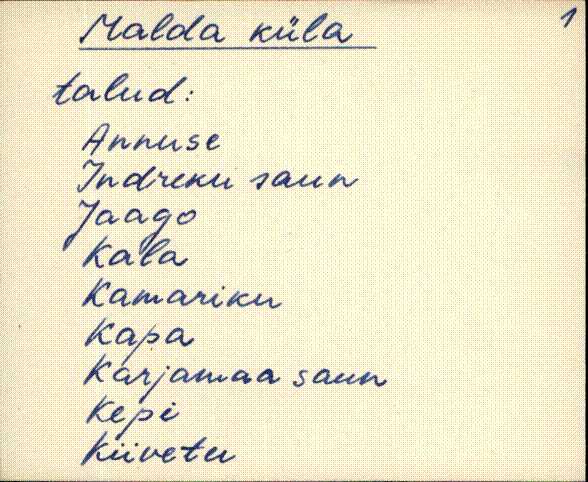 1
Malda küla
talud:
Annuse
Indreku saun
Jaago
Kala
Kamariku
Kapa
Karjamaa saun
Kepi
Kiivetu